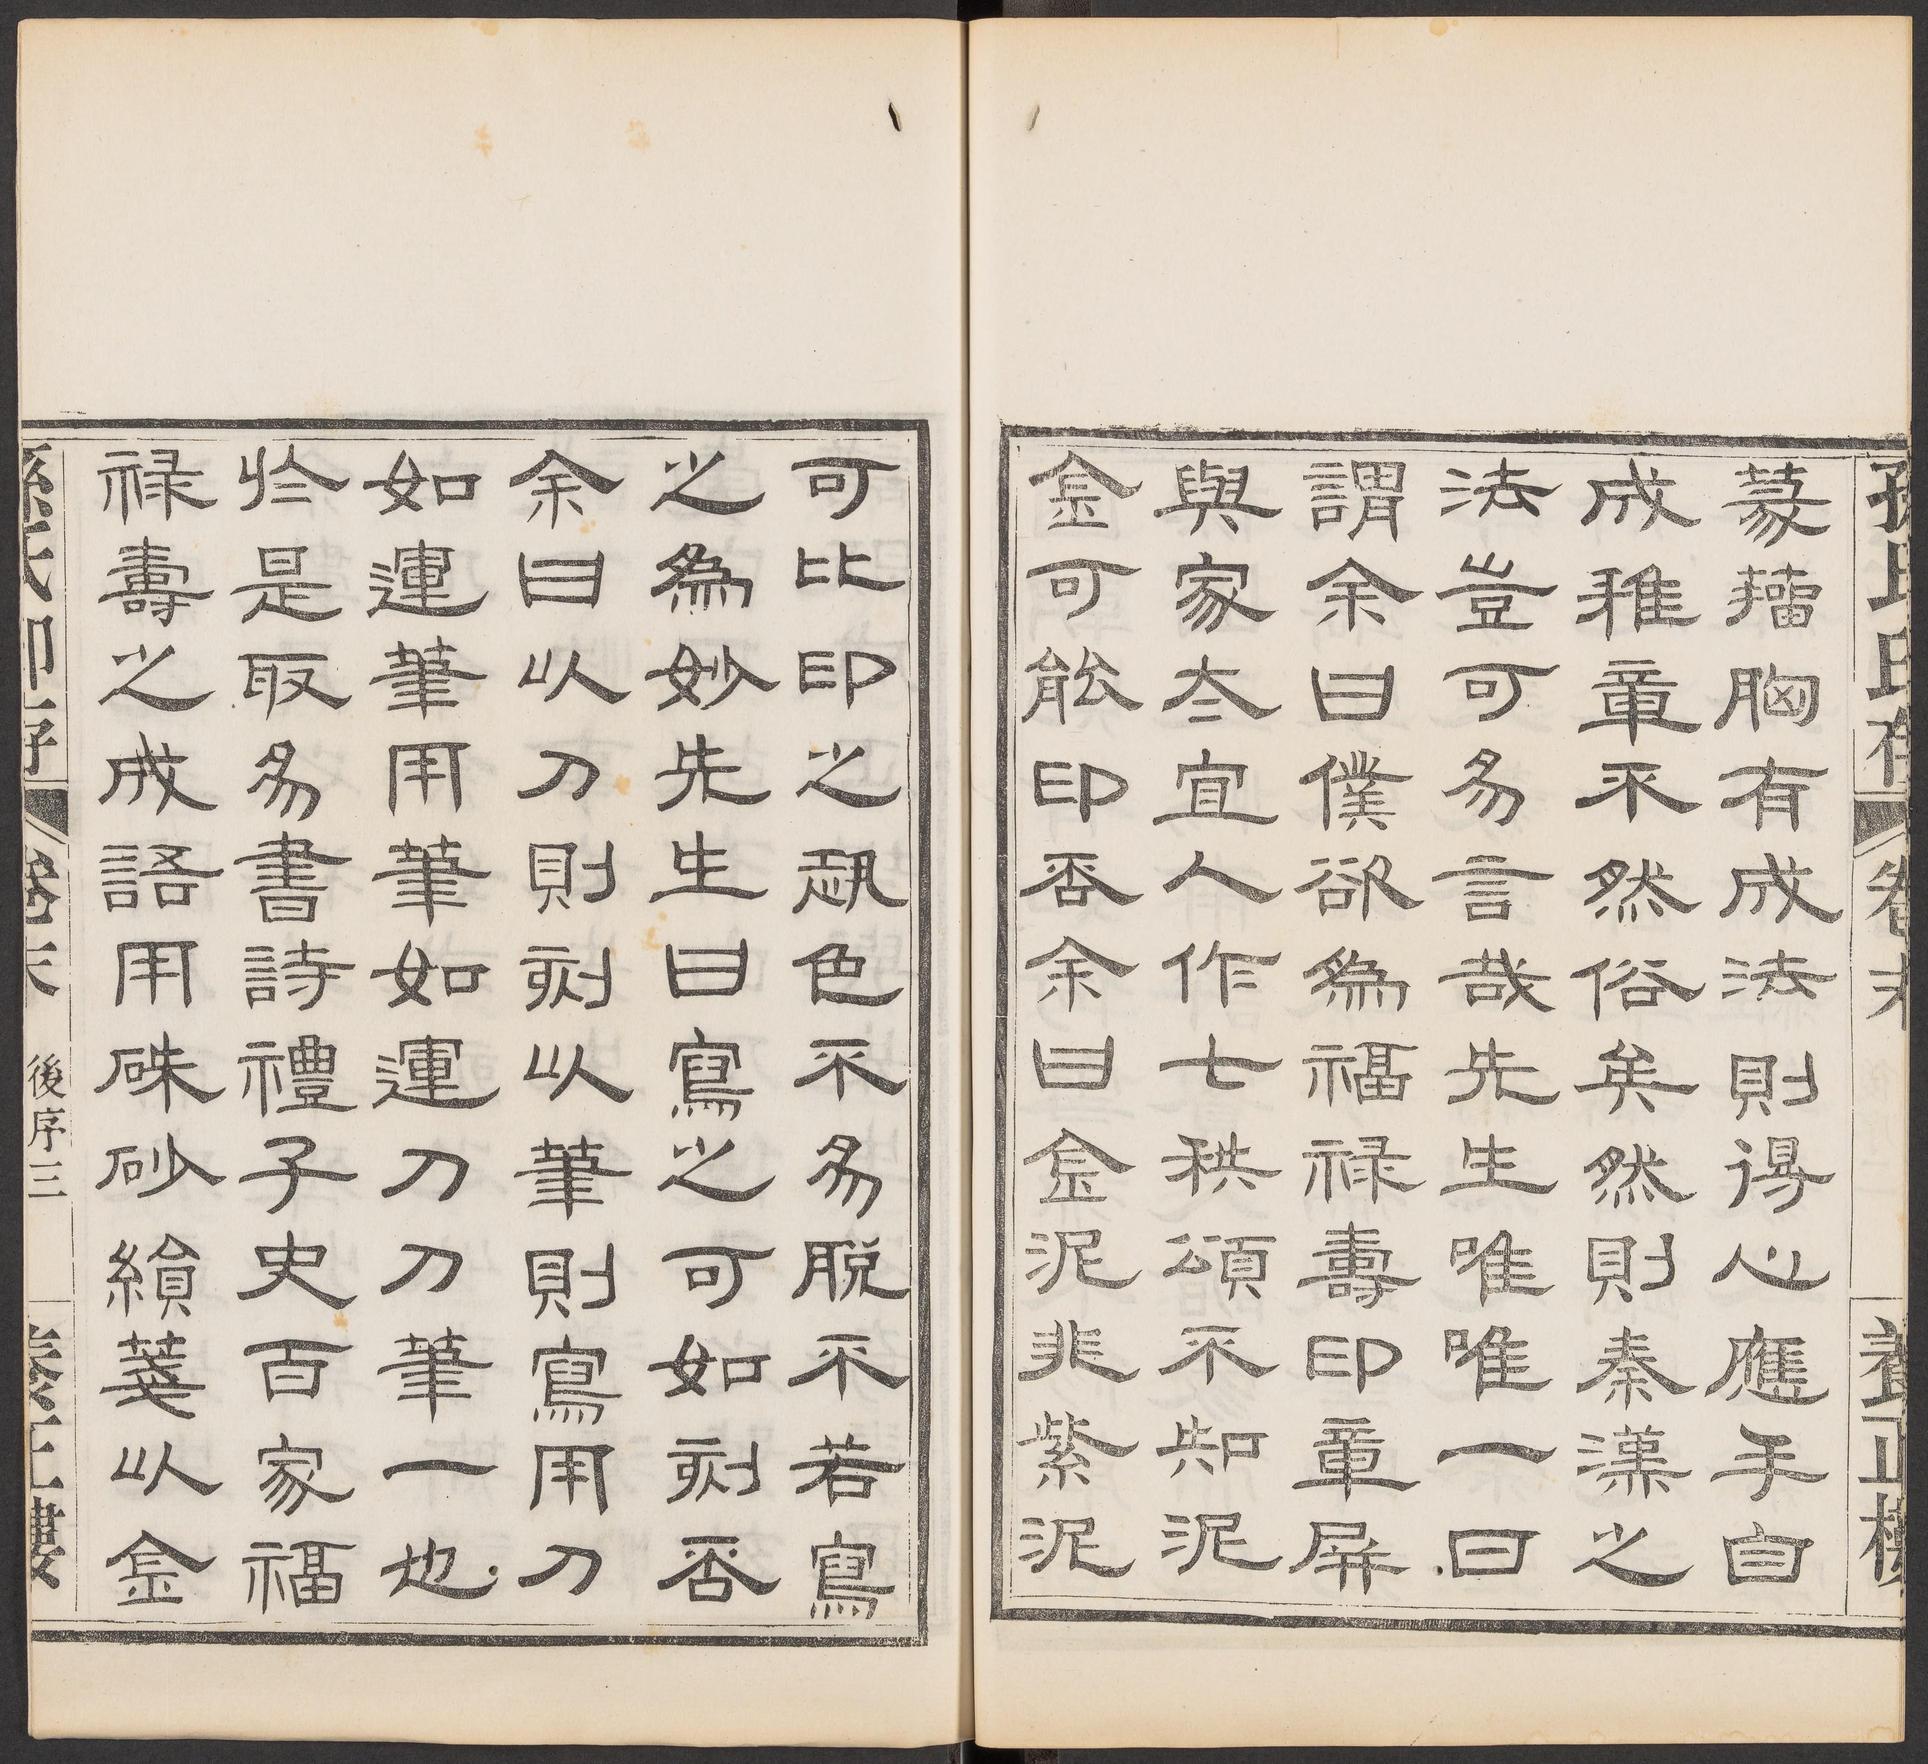 篆籀胸有成法則得心應手自
成稚章不然俗矣然則秦漢之
法豈可易言哉先生唯唯一日
謂余曰僕欲為福祿壽印章屏
與家太宜人作七秩頌不知泥
金可能印否余曰金泥非紫泥
可比印之翫色不易脱不若寫
之為妙先生曰寫之可如刻否
余曰以刀則刻以筆則寫用刀
如運筆用筆如運刀刀筆一也
於是取易書詩禮子史百家福
祿壽之成語用硃砂繪箋以金
後序三